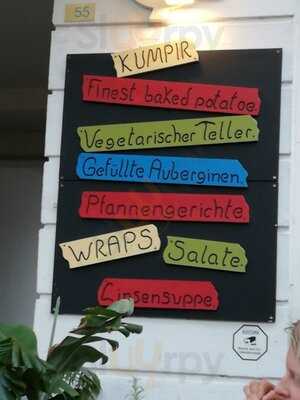 55
KUMPIR
Finest baked potatoe.
Vegetarischer Teller.
Gefüllte Auberginen.
Pfannengerichte
WRAPS.
Salate.
Linsensuppe